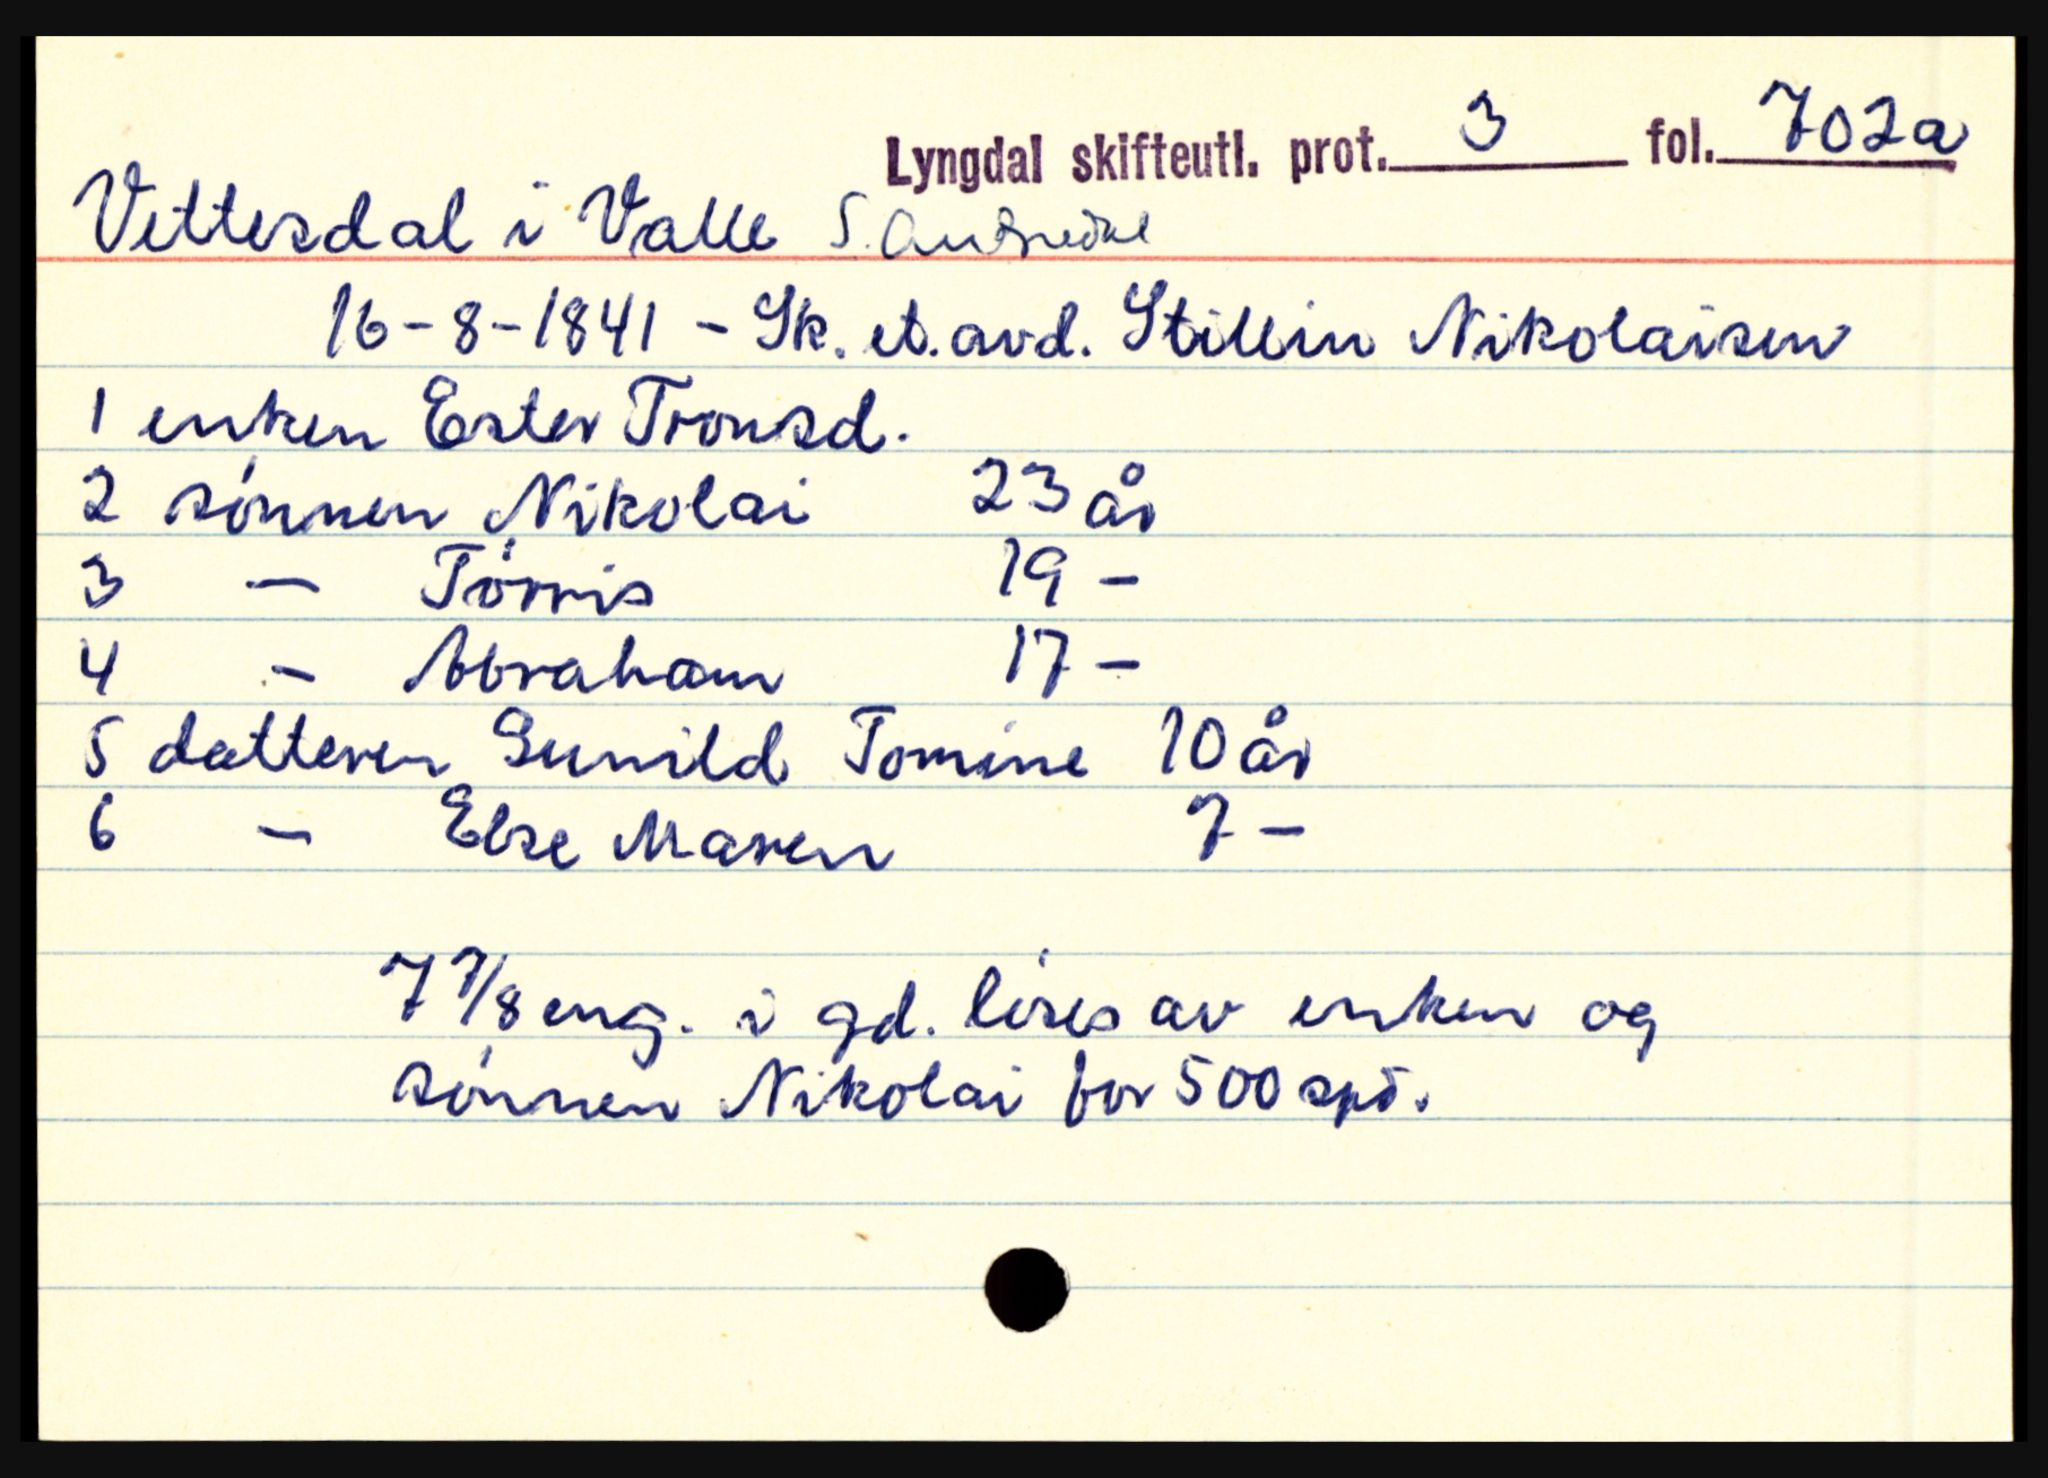 Lyngdal skifteutl. prot. 3 fol. 702a
Vittersdal i Valle S. Audnedal
16-8-1841 - Sk. et. avd. Stillin Nikolaisen
1 enken Ester Tronsd.
2 sønnen Nikolai 23 år
3 — Tørris 19 —
4 — Abraham 17 —
5 datteren Gunild Tomine 10 år
6 — Else Maren 7 —
7 7/8 eng. i gd. løses av enken og
sønnen Nikolai for 500 spd.